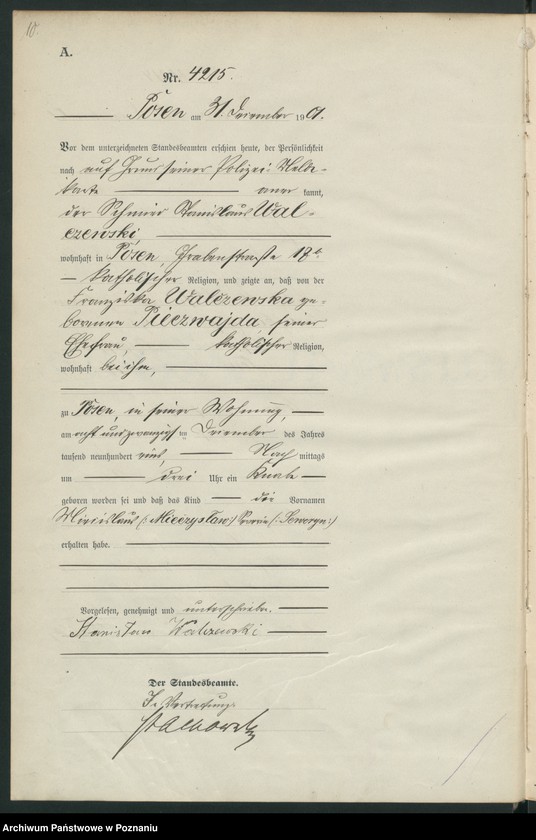 10.
A.
Nr. 4215.
Posen am 31. Dezember 1901.
Vor dem unterzeichneten Standesbeamten erschien heute, der Persönlichkeit
nach auf Grund seiner Polizei-Melde-
karte aner kannt,
der Stanislaus Wal-
czewski
wohnhaft in Posen, Grabenstraße
katholischer Religion, und zeigte an, daß von der
Franziska Walczewska ge-
borenen Pierzwajda, seiner
Ehefrau, katholischer Religion,
wohnhaft bei ihm,
zu Posen, in seiner Wohnung,
am acht und zwanzigsten Dezember des Jahres
tausend neunhundert eins, Nach mittags
um drei Uhr ein Knabe
geboren worden sei und daß das Kind die Vornamen
Miecislaus (: Mieczysław :) Severin (: Seweryn :)
erhalten habe.
Vorgelesen, genehmigt und unterschrieben.
Stanisław Walczewski
Der Standesbeamte.
In Vertretung.
Archiwum Państwowe w Poznaniu